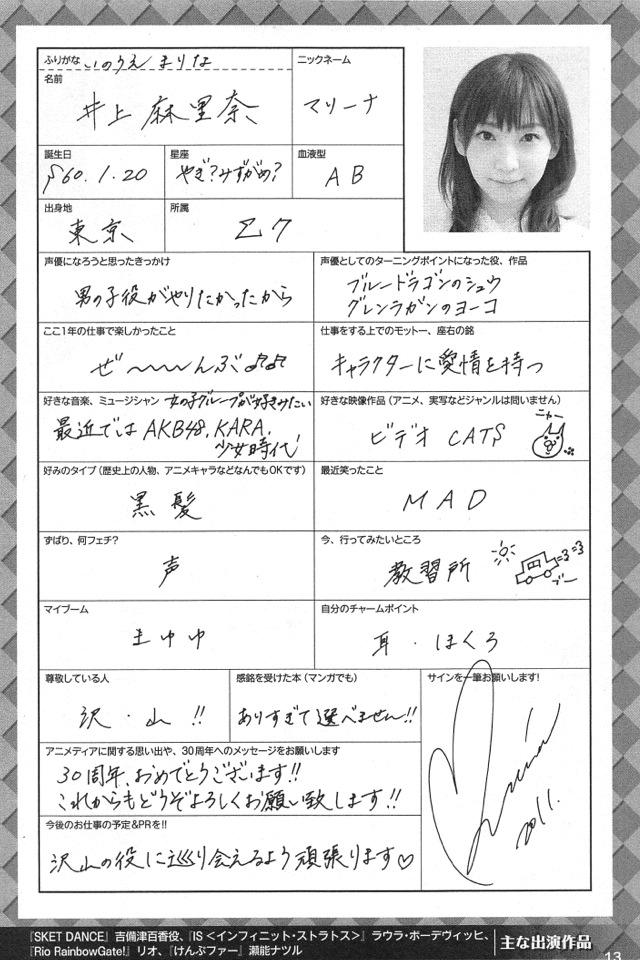 ふりがな いのうえ まりな
名前
井上 麻里奈
ニックネーム
マリーナ
誕生日
S60.1.20
星座
やぎ?みずがめ?
血液型
AB
出身地
東京
所属
乙ク
声優になろうと思ったきっかけ
男の子役がやりたかったから
声優としてのターニングポイントになった役、作品
ブルードラゴンのシュウ
グレンラガンのヨーコ
ここ1年の仕事で楽しかったこと
ぜ〜〜〜んぶ♪♪
仕事をする上でのモットー、座右の銘
キャラクターに愛情を持つ
好きな音楽、ミュージシャン 女の子グループが好きみたい
最近では AKB48, KARA,
少女時代
好きな映像作品(アニメ、実写などジャンルは問いません)
ビデオ CATS
ニャー
好みのタイプ(歴史上の人物、アニメキャラなどなんでもOKです)
黒髪
最近笑ったこと
MAD
ずばり、何フェチ?
声
今、行ってみたいところ
教習所
ブー
マイブーム
まゆゆ
自分のチャームポイント
耳・ほくろ
尊敬している人
沢・山!!
感銘を受けた本(マンガでも)
ありすぎて選べません!!
サインを一筆お願いします!
Marina
2011.
アニメディアに関する思い出や、30周年へのメッセージをお願いします
30周年、おめでとうございます!!
これからもどうぞよろしくお願い致します!!
今後のお仕事の予定&PRを!!
沢山の役に巡り会えるよう頑張ります♡
『SKET DANCE』吉備津百香役、『IS<インフィニット・ストラトス>』ラウラ・ボーデヴィッヒ、
『Rio RainbowGate!』リオ、『けんぷファー』瀬能ナツル
主な出演作品
13